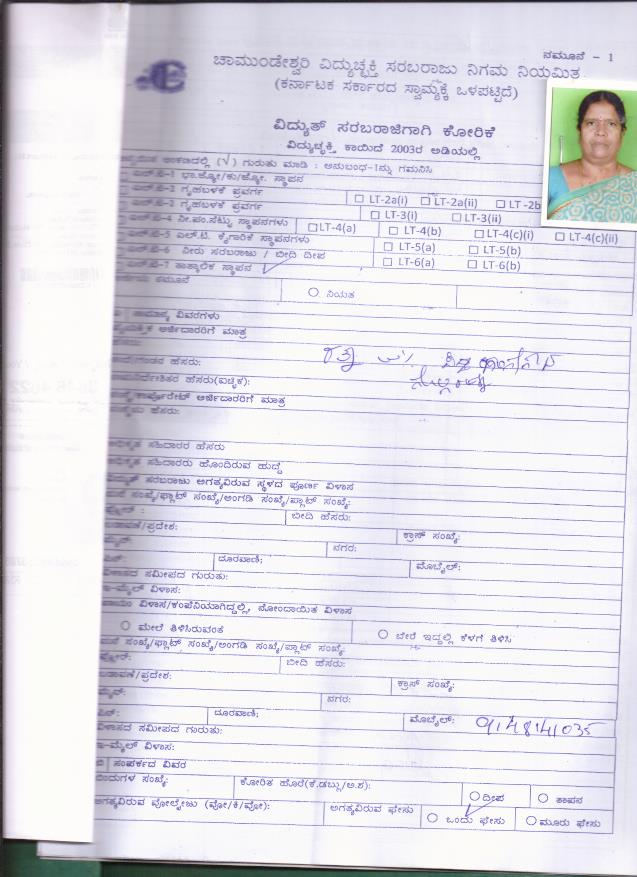 ನಮೂನೆ - 1
ಚಾಮುಂಡೇಶ್ವರಿ ವಿದ್ಯುಚ್ಛಕ್ತಿ ಸರಬರಾಜು ನಿಗಮ ನಿಯಮಿತ
(ಕರ್ನಾಟಕ ಸರ್ಕಾರದ ಸ್ವಾಮ್ಯಕ್ಕೆ ಒಳಪಟ್ಟಿದೆ)
ವಿದ್ಯುತ್ ಸರಬರಾಜಿಗಾಗಿ ಕೋರಿಕೆ
ವಿದ್ಯುಚ್ಛಕ್ತಿ ಕಾಯಿದೆ 2003ರ ಅಡಿಯಲ್ಲಿ
ಅಂಕಣದಲ್ಲಿ (√) ಗುರುತು ಮಾಡಿ : ಅನುಬಂಧ-1ನ್ನು ಗಮನಿಸಿ
ಎಲ್.ಟಿ-1 ಭಾ.ಜ್ಯೋ/ಕು/ಜ್ಯೋ. ಸ್ಥಾಪನ
ಎಲ್.ಟಿ-2 ಗೃಹಬಳಕೆ ಪ್ರವರ್ಗ LT-2a(i) LT-2a(ii) LT-2b
ಗೃಹಬಳಕೆ ಪ್ರವರ್ಗ LT-3(i) LT-3(ii)
ಎಲ್.ಟಿ-4 ನೀ.ಪಂ.ಸೆಟ್ಟು ಸ್ಥಾಪನಗಳು LT-4(a) LT-4(b) LT-4(c)(i) LT-4(c)(ii)
ಎಲ್.ಟಿ-5 ಎಲ್.ಟಿ. ಕೈಗಾರಿಕೆ ಸ್ಥಾಪನಗಳು LT-5(a) LT-5(b)
ಎಲ್.ಟಿ-6 ನೀರು ಸರಬರಾಜು / ಬೀದಿ ದೀಪ LT-6(a) LT-6(b)
ಎಲ್.ಟಿ-7 ತಾತ್ಕಾಲಿಕ ಸ್ಥಾಪನ
ನಮೂನೆ ನಿಯತ
ಸಾಮಾನ್ಯ ವಿವರಗಳು
ಅರ್ಜಿದಾರರಿಗೆ ಮಾತ್ರ
ಹೆಸರು:
ಹೆಸರು:
ಹೆಸರು(ಐಚ್ಛಿಕ):
ಕಾರ್ಪೊರೇಟ್ ಅರ್ಜಿದಾರರಿಗೆ ಮಾತ್ರ
ಹೆಸರು:
ಅಧಿಕೃತ ಸಹಿದಾರರ ಹೆಸರು
ಅಧಿಕೃತ ಸಹಿದಾರರು ಹೊಂದಿರುವ ಹುದ್ದೆ
ವಿದ್ಯುತ್ ಸರಬರಾಜು ಅಗತ್ಯವಿರುವ ಸ್ಥಳದ ಪೂರ್ಣ ವಿಳಾಸ
ಮನೆ ಸಂಖ್ಯೆ/ಫ್ಲಾಟ್ ಸಂಖ್ಯೆ/ಅಂಗಡಿ ಸಂಖ್ಯೆ/ಪ್ಲಾಟ್ ಸಂಖ್ಯೆ:
ಫ್ಲೋರ್ : ಬೀದಿ ಹೆಸರು:
ಬಡಾವಣೆ/ಪ್ರದೇಶ: ಕ್ರಾಸ್ ಸಂಖ್ಯೆ:
ಮೈನ್: ನಗರ:
ಪಿನ್: ದೂರವಾಣಿ: ಮೊಬೈಲ್:
ವಿಳಾಸದ ಸಮೀಪದ ಗುರುತು:
ಇ-ಮೈಲ್ ವಿಳಾಸ:
ಖಾಯಂ ವಿಳಾಸ/ಕಂಪೆನಿಯಾಗಿದ್ದಲ್ಲಿ, ನೋಂದಾಯಿತ ವಿಳಾಸ
ಮೇಲೆ ತಿಳಿಸಿರುವಂತೆ ಬೇರೆ ಇದ್ದಲ್ಲಿ ಕೆಳಗೆ ತಿಳಿಸಿ
ಮನೆ ಸಂಖ್ಯೆ/ಫ್ಲಾಟ್ ಸಂಖ್ಯೆ/ಅಂಗಡಿ ಸಂಖ್ಯೆ/ಪ್ಲಾಟ್ ಸಂಖ್ಯೆ:
ಫ್ಲೋರ್: ಬೀದಿ ಹೆಸರು:
ಬಡಾವಣೆ/ಪ್ರದೇಶ: ಕ್ರಾಸ್ ಸಂಖ್ಯೆ:
ಮೈನ್: ನಗರ:
ಪಿನ್: ದೂರವಾಣಿ: ಮೊಬೈಲ್: 9148141035
ವಿಳಾಸದ ಸಮೀಪದ ಗುರುತು:
ಇ-ಮೈಲ್ ವಿಳಾಸ:
ಬಿ ಸಂಪರ್ಕದ ವಿವರ
ಬಿಂದುಗಳ ಸಂಖ್ಯೆ: ಕೋರಿತ ಹೊರೆ(ಕೆ.ಡಬ್ಲು/ಅ.ಶ): ದೀಪ ತಾಪನ
ಅಗತ್ಯವಿರುವ ವೋಲ್ಟೇಜು (ವೋ/ಕಿ/ವೋ): ಅಗತ್ಯವಿರುವ ಫೇಸು ಒಂದು ಫೇಸು ಮೂರು ಫೇಸು